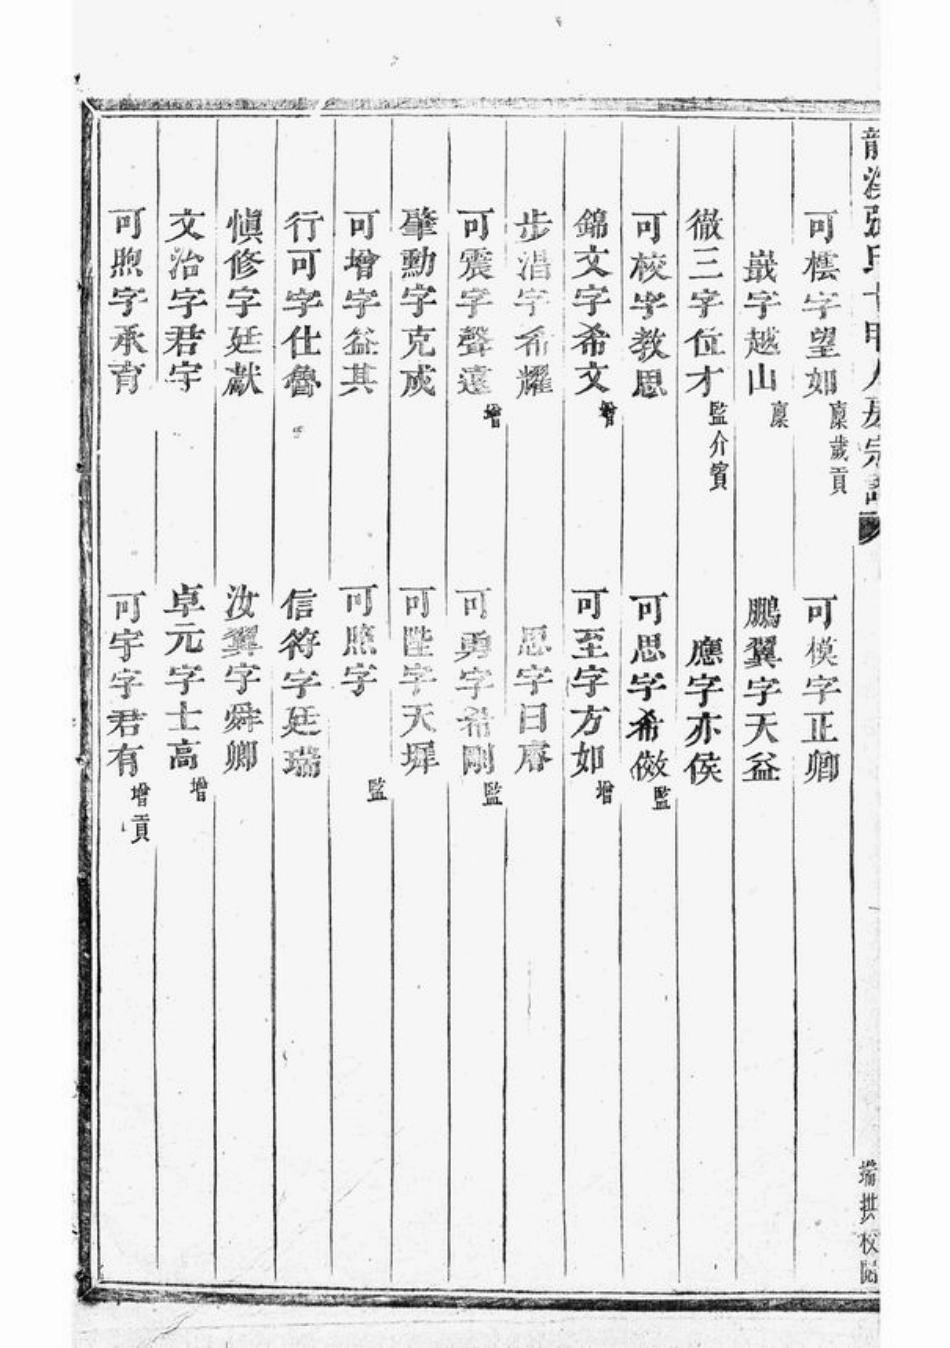 龍溪張氏十甲人房宗譜
可橒字望如 廩歲貢
可模字正卿
嶽字越山 廩
鵬翼字天益
徹三字位才 監介賓
應字亦侯
可校字教思
可思字希倣 監
錦文字希文 增
可至字方如 增
步渴字希耀
思字日睿
可震字聲遠 增
可勇字希剛 監
肇勳字克成
可陛字天墀
可增字益其
可熊字 監
行可字仕魯
信符字廷瑞
慎修字廷獻
汝翼字舜卿
文治字君宇
卓元字士高 增
可煦字承育
可宇字君有 增貢
瑞拱校閱